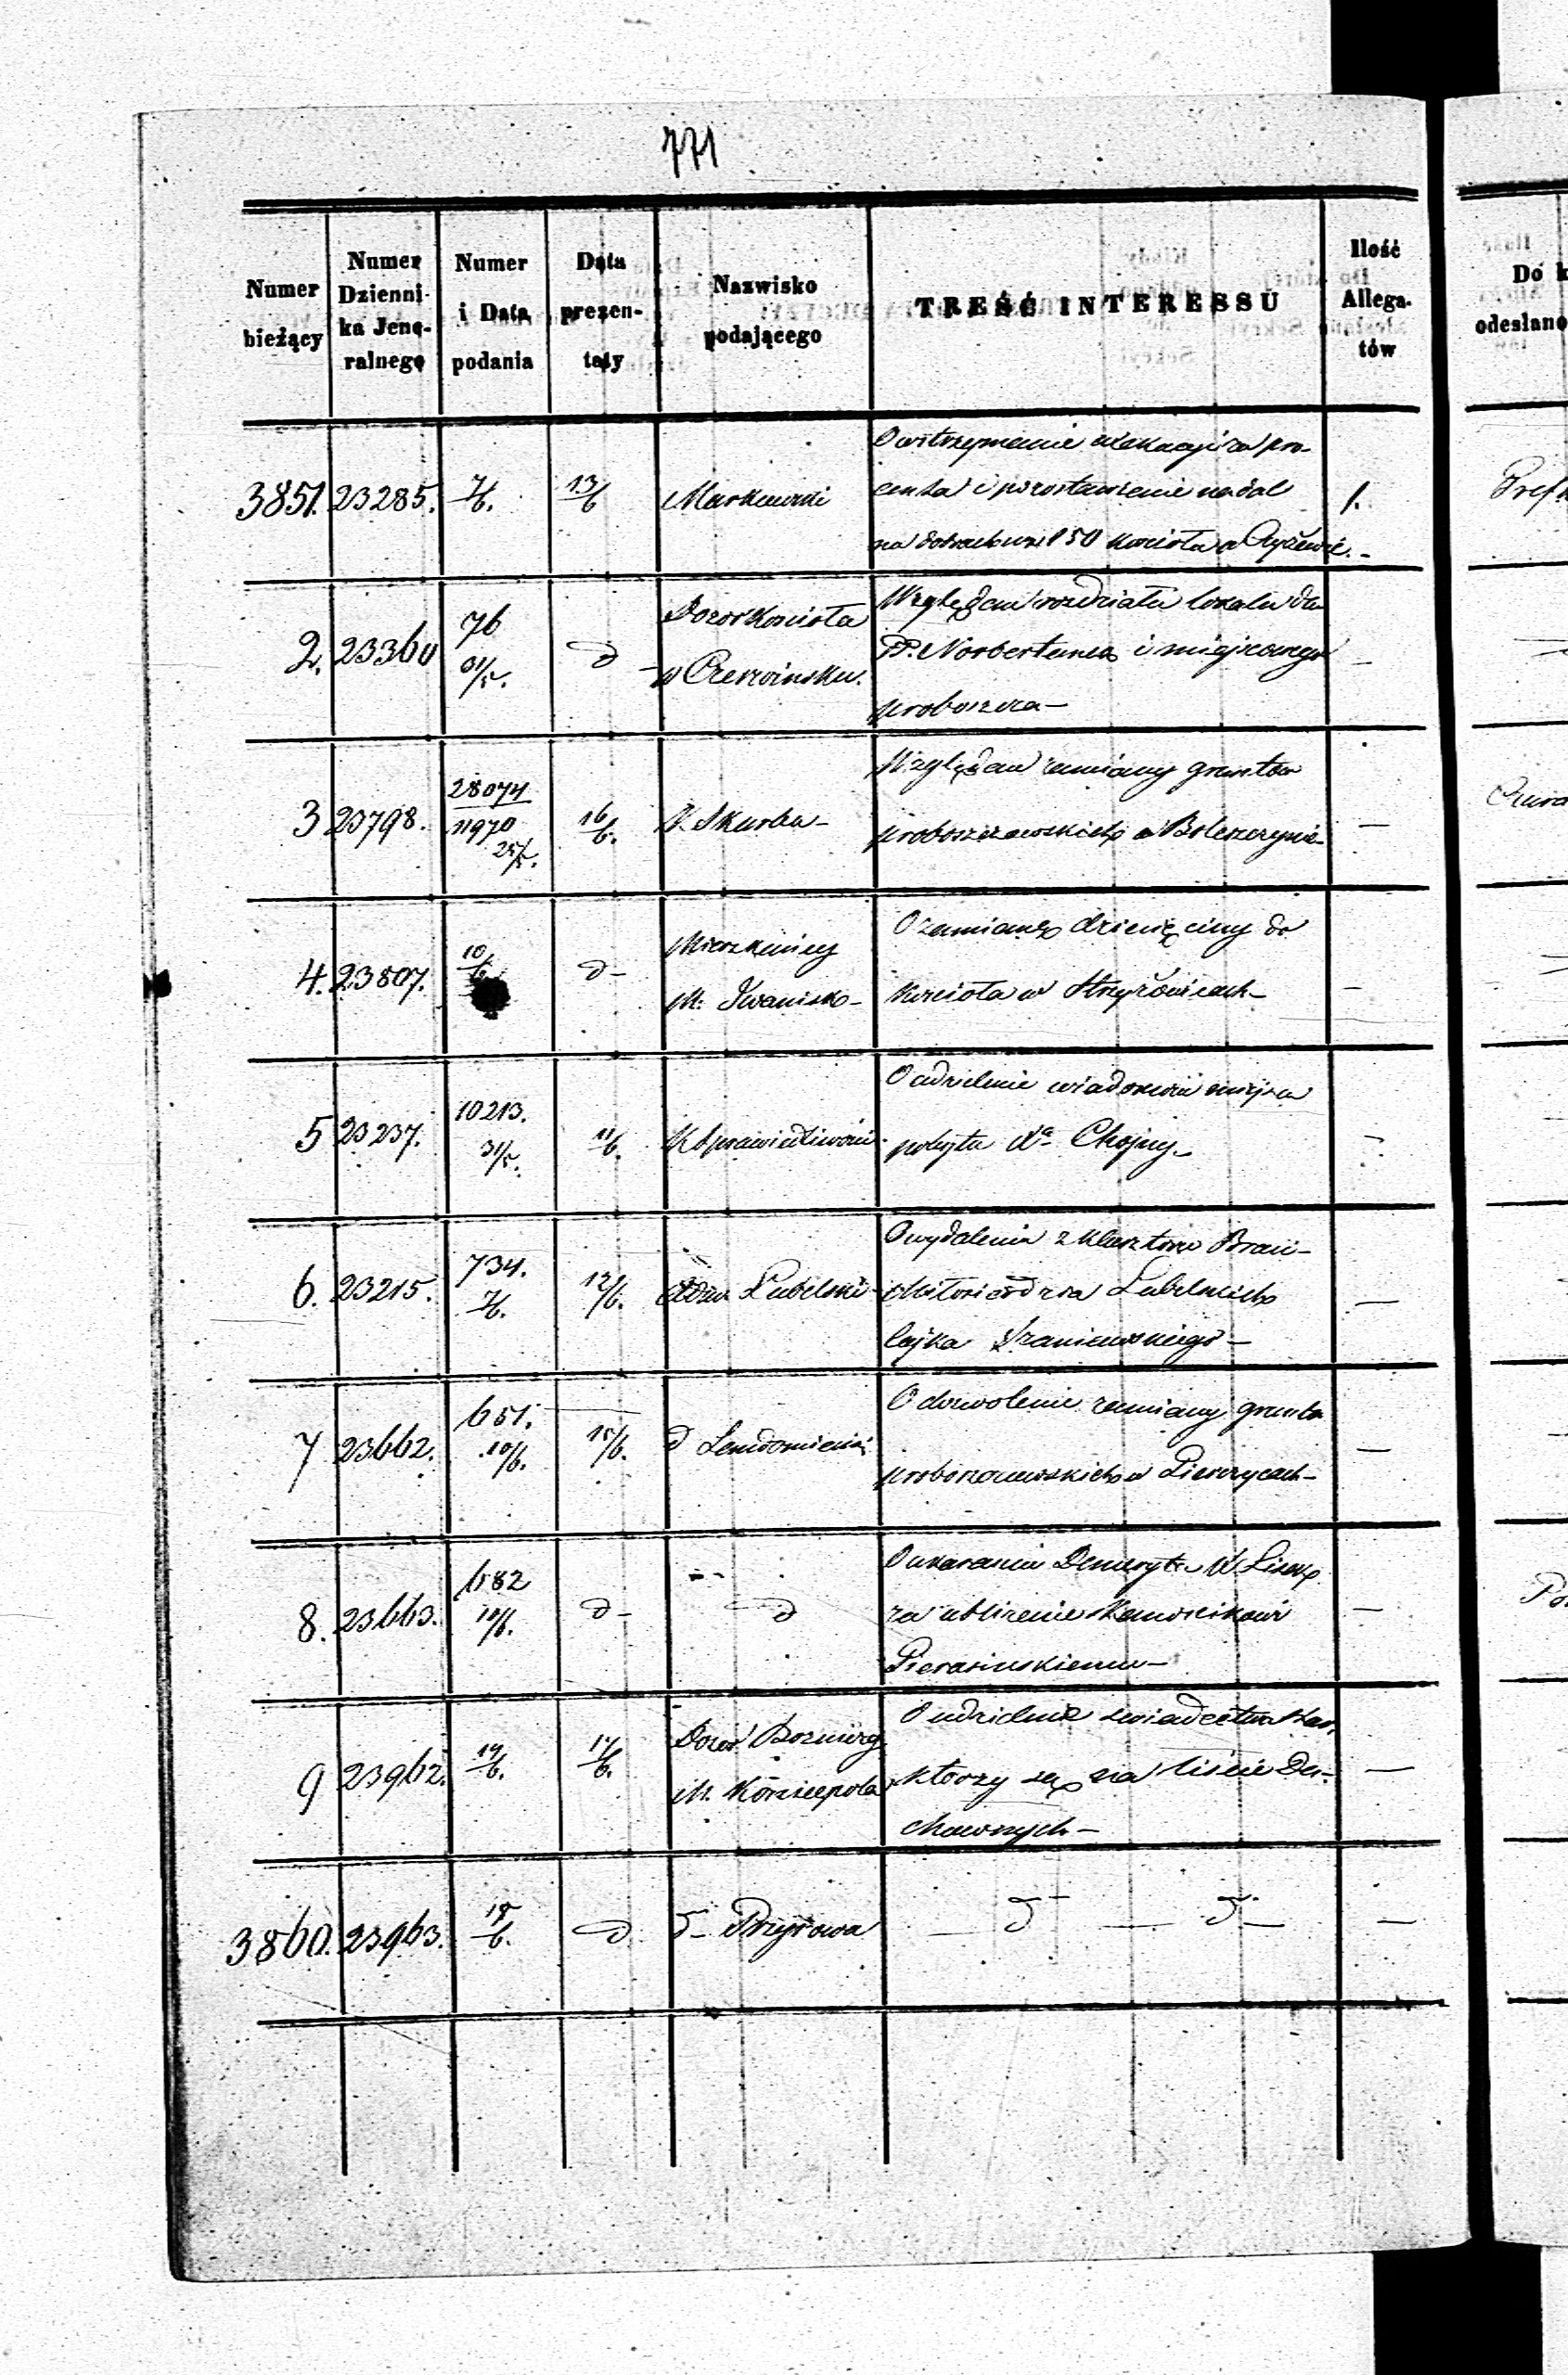 771
Numer bieżący
Numer Dzienni- ka Jene- ralnego
Numer i Data podania
Data prezen- taty
Nazwisko podającego
TREŚĆ INTERESSU
Ilość Allega- tów
Do
odesłano
3851. 23285. 7/6. 13/6 1.
O wstrzymanie exekucyi za pro-
centa i pozostawienie nadal
na 150 kościoła w
2. 23360 76 31/5. d
Dozór Kościoła
w Czerwińsku.
Względem rozdziału lokalu dla
PP. Norbertanek i miejscowego
proboszcza —
3 23798. 28074 11970 25/5. 16/6. K. Skarbu —
Względem zamiany gruntów
proboszczowskich w
4. 23807. 10/6 d —
Mieszkańcy
M. Iwanisk —
O zamianę dziesięciny do
kościoła w Stryżowicach —
5 23237. 10213. 31/5. 11/6. K. Sprawiedliwości
O udzielenie wiadomości miejsca
pobytu Xa Chojny —
6. 23215. 734. 7/6. 12/6. Adm. Lubelski
O wydalenie z klasztoru Braci
Miłosierdzia Lubelskich
lajka Szaniawskiego —
7 23662. 651. 10/6. 15/6. d Sandomierski
O dozwolenie zamiany gruntu
proboszczowskich w Pierzycach —
8. 23663. 682 10/6. d — d
O ukaranie Demeryta X.
za ubliżenie Kanonikowi
9 23962. 14/6. 17/6.
Dozór Bożniczy
M. Koniecpola
O udzielenie świadectwa
którzy są na liście Du-
chownych —
3860. 23963. 15/6. d d — Przyrowa d — d —